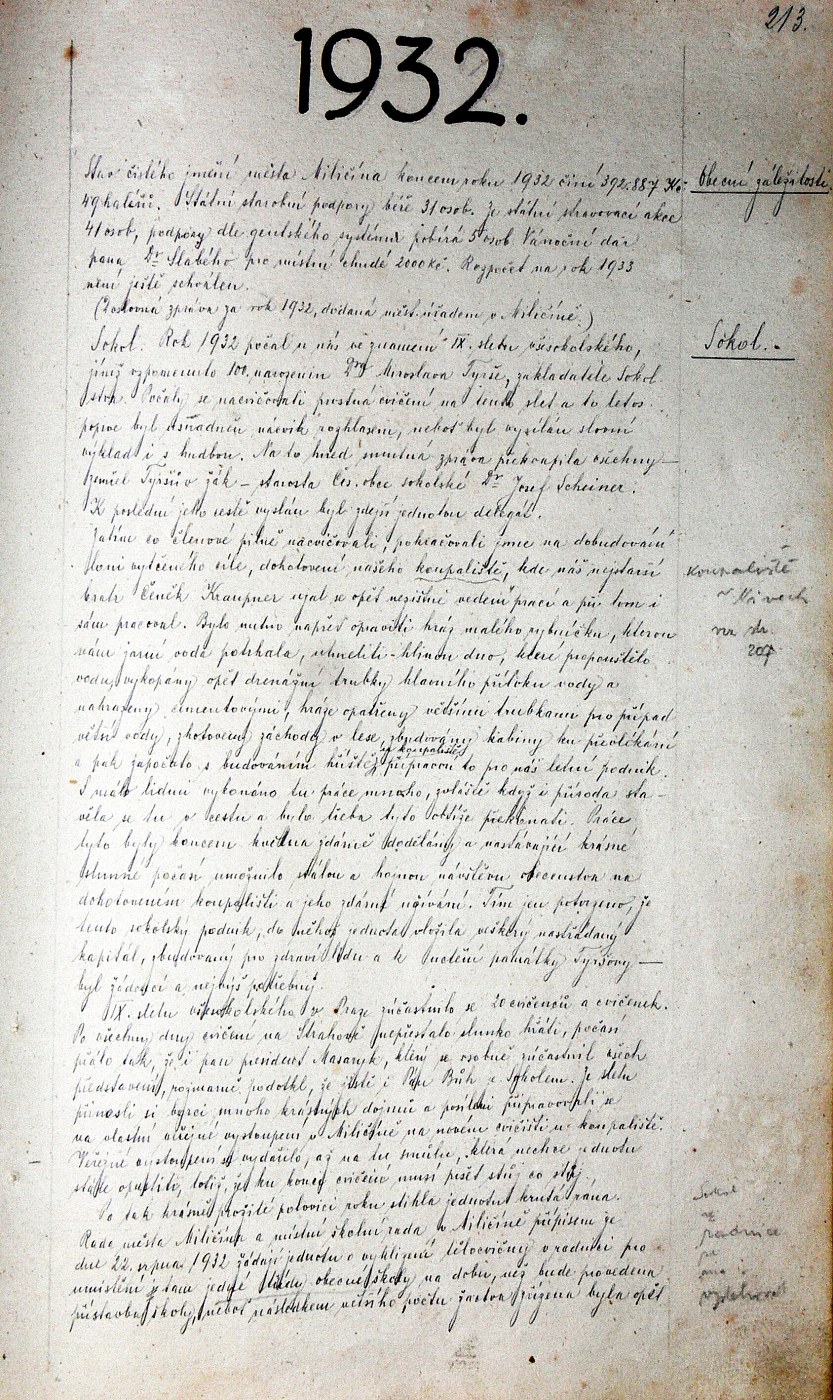 213.
1932.
Stav čistého jmění města Miličína koncem roku 1932 činí 392.887 Kč
Obecní záležitosti.
49 haléřů. Státní starobní podpory béře 31 osob. Ze státní stravovací akce
41 osob, podpory dle gentského systému pobírá 5 osob. Vánoční dar
pana Dr Slabého pro místní chudé 2000 Kč. Rozpočet na rok 1933
není ještě schválen.
(Doslovná zpráva za rok 1932, dodaná měst. úřadem v Miličíně.)
Sokol. Rok 1932 počal u nás ve znamení IX. sletu všesokolského,
Sokol.
jímž vzpomenuto 100. narozenin Dra Miroslava Tyrše, zakladatele Sokol
stva. Počaly se nacvičovati prostná cvičení na tento slet a to letos
poprve byl usnadněn nácvik rozhlasem, neboť byl vysílán slovní
výklad i s hudbou. Na to hned smutná zpráva překvapila všechny –
zemřel Tyršův žák – starosta Čes. obce sokolské Dr Josef Scheiner.
K poslední jeho cestě vyslán byl zdejší jednotou delegát.
Zatím co členové pilně nacvičovali, pokračovali jsme na dobudování
vytčeného cíle, dohotovení našeho koupaliště, kde náš nejstarší
koupaliště
bratr Čeněk Kraupner ujal se opět nezištně vedení prací a při tom i
v Nivech
sám pracoval. Bylo nutno napřed opraviti hráz malého rybníčku, kterou
viz str.
nám jarní voda potrhala, uhnětiti hlínou dno, které propouštělo
207
vodu, vykopány opět drenážní trubky hlavního přítoku vody a
nahrazeny cementovými, hráze opatřeny většími trubkami pro případ
větší vody, zhotoveny záchody v lese, zbudovány kabiny ku převlékání
u koupaliště
a pak započato s budováním hřiště, připravou to pro náš letní podnik.
S málo lidmi vykonáno tu práce mnoho, zvláště když i příroda sta-
věla se tu v cestu a bylo třeba tyto obtíže překonati. Práce
tyto byly koncem května zdárně dodělány a nastávající krásné
slunné počasí umožnilo stálou a hojnou návštěvu obecenstva na
dohotoveném koupališti a jeho zdárné užívání. Tím jen potvrzeno, že
tento sokolský podnik, do něhož jednota vložila veškerý nastřádaný
kapitál, zbudovaný pro zdraví lidu a k uctění památky Tyršovy –
byl žádoucí a nejvýš potřebný.
IX. sletu všesokolského v Praze zúčastnilo se 20 cvičenců a cvičenek.
Po všechny dny cvičení na Strahově nepřestalo slunko hřáti, počasí
přálo tak, že i pan president Masaryk, který se osobně zúčastnil všech
představení, rozmarně podotkl, že jistě i Pán Bůh je Sokolem. Ze sletu
přinesli si borci mnoho krásných dojmů a posíleni připravovali se
na vlastní veřejné vystoupení v Miličíně na novém cvičišti u koupaliště.
Veřejné vystoupení se vydařilo, až na tu smůlu, která nechce jednotu
stále opustiti, totiž, že ku konci cvičení musí pršet stůj co stůj.
Po tak krásně prožité polovici roku stihla jednotu krutá rána.
Sokol
Rada města Miličína a místní školní rada v Miličíně přípisem ze
radnice
dne 22. srpna 1932 žádají jednotu o vyklizení tělocvičny v radnici pro
umístění tam jedné třídy obecné školy na dobu, než bude provedena
přístavba školy, neboť následkem většího počtu žactva zřízena byla opět